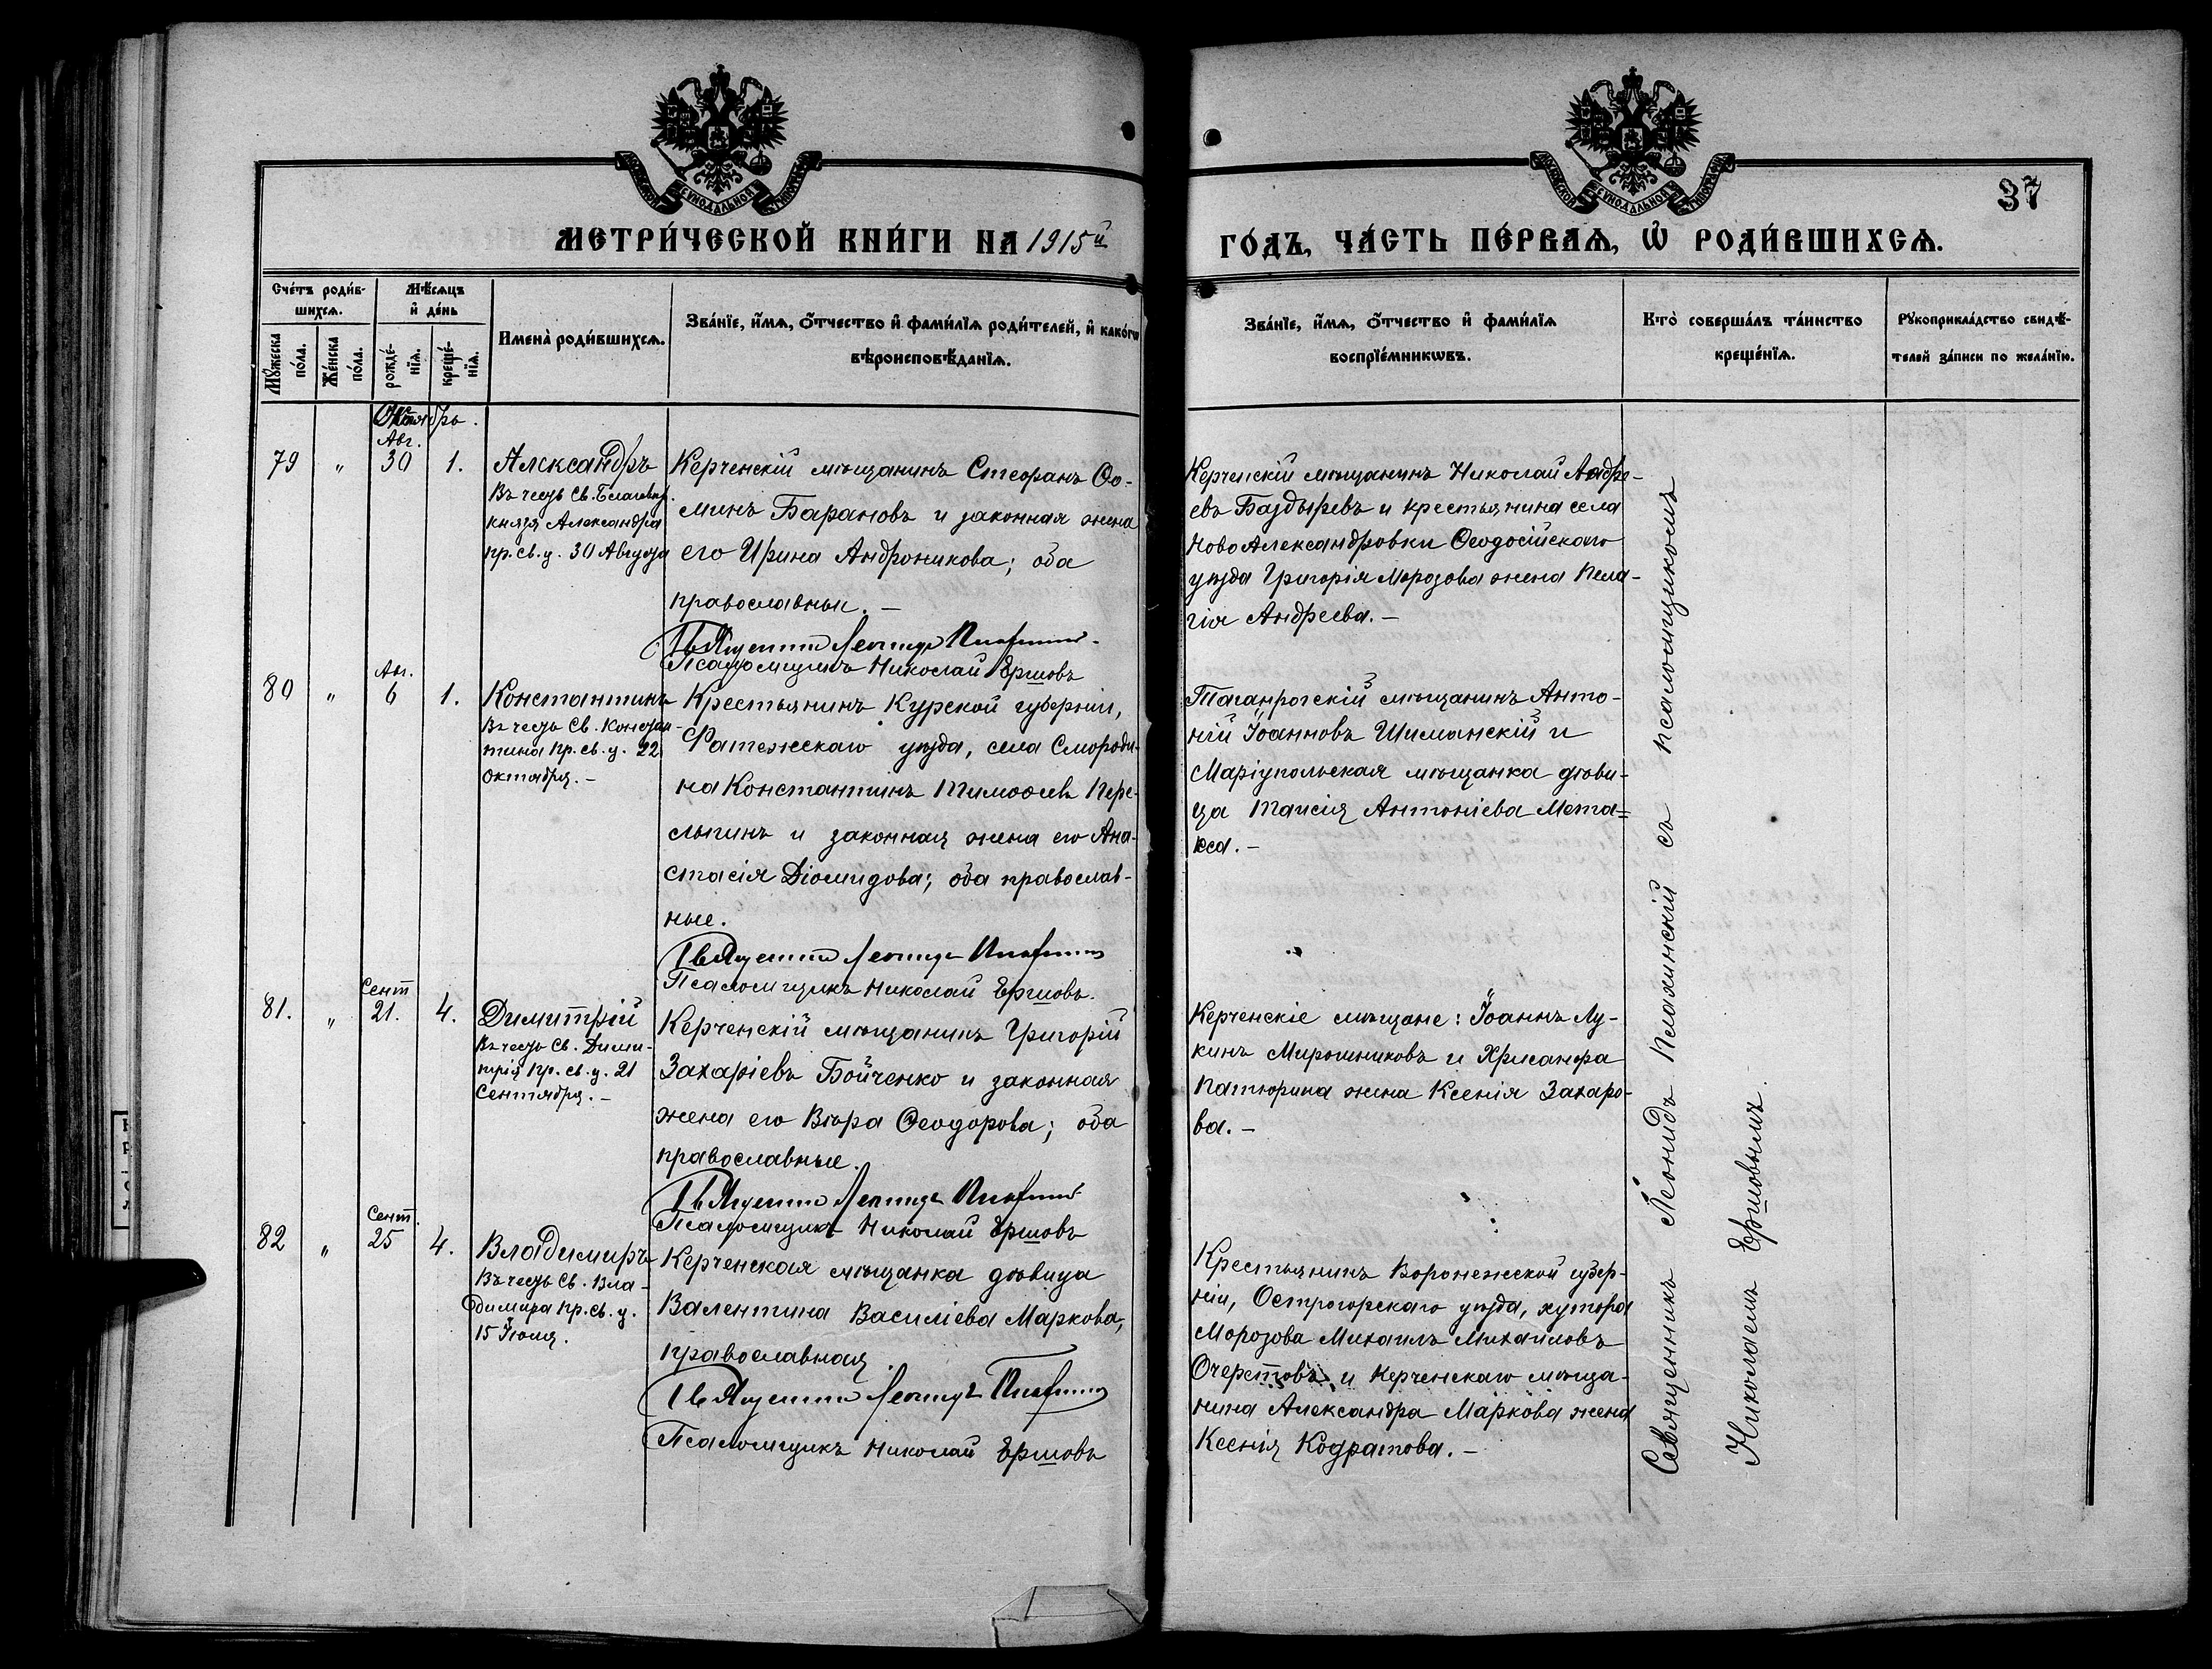 МЕТРИ́ЧЕСКОЙ КНИ́ГИ НА 1915й
ГО́ДЪ, ЧА́СТЬ ПЕ́РВАѦ, Ѡ҆ РОДИ́ВШИХСѦ.
37
Сче́тъ роди́в-
шихсѧ.
Мѣ́сѧцъ
и҆ де́нь
Имена̀ роди́вшихсѧ.
Зва́нїе, и҆́мѧ, ѻ҆́тчество и҆ фами́лїѧ роди́телей, и҆ како́гѡ
вѣроисповѣ́данїѧ.
Мꙋ́жеска
по́ла.
Же́нска
по́ла.
рожде́-
нїѧ.
креще́-
нїѧ.
Зва́нїе, и҆́мѧ, ѻ҆́тчество и҆ фами́лїѧ
воспрїе́мникѡвъ.
Кто̀ соверша́лъ та́инство
креще́нїѧ.
Рꙋкоприкла́дство свидѣ́-
телей за́писи по жела́нїю.
Октябрь.
Авг.
79 " 30 1.
Александръ
Въ честь Св. Благовѣр.
князя Александра
пр. св. ц. 30 Августа
Керченскій мѣщанинъ Стефанъ Ѳо-
минъ Барановъ и законная жена
его Ирина Андроникова; оба
православные. —
Священникъ Леонидъ
Псаломщикъ Николай Ершовъ
Керченскій мѣщанинъ Николай Андре-
евъ Баздыревъ и крестьянина села
Ново Александровки Ѳеодосійскаго
уѣзда Григорія Морозова жена Пела-
гія Андреева. —
Авг.
80 " 6 1.
Константинъ
Въ честь Св. Констан-
тина пр. св. ц. 22
Октября. —
Крестьянинъ Курской губерніи,
Фатежскаго уѣзда, села Смороди-
на Константинъ Тимоѳеевъ Пере-
лыгинъ и законная жена его Ана-
стасія Діомидова; оба православ-
ные.
Священникъ Леонидъ
Псаломщикъ Николай Ершовъ.
Таганрогскій мѣщанинъ Анто-
ній Іоанновъ Шиманскій и
Маріупольская мѣщанка дѣви-
ца Таисія Антоніева Мета=
кса. —
Сент
81. " 21. 4.
Димитрій
Въ честь Св. Дими-
трія пр. св. ц. 21
Сентября. —
Керченскій мѣщанинъ Григорій
Захаріевъ Бойченко и законная
жена его Вѣра Ѳеодорова; оба
православные.
Священникъ Леонидъ
Псаломщикъ Николай Ершовъ
Керченскіе мѣщане: Іоаннъ Лу-
кинъ Мирошниковъ и Хрисанфа
Патюрина жена Ксенія Захаро-
ва. —
Сент.
82 " 25 4.
Владимиръ
Въ честь Св. Вла-
димира пр. св. ц.
15 Іюля.
Керченская мѣщанка дѣвица
Валентина Василіева Маркова,
православная.
Священникъ Леонидъ
Псаломщикъ Николай Ершовъ
Крестьянинъ Воронежской губер-
ніи, Острогорскаго уѣзда, хутора
Морозова Михаилъ Михайловъ
Очеретовъ и Керченскаго мѣща-
нина Александра Маркова жена
Ксенія Кодратова. —
Священникъ Леонидъ съ псаломщикомъ
Николаемъ Ершовымъ